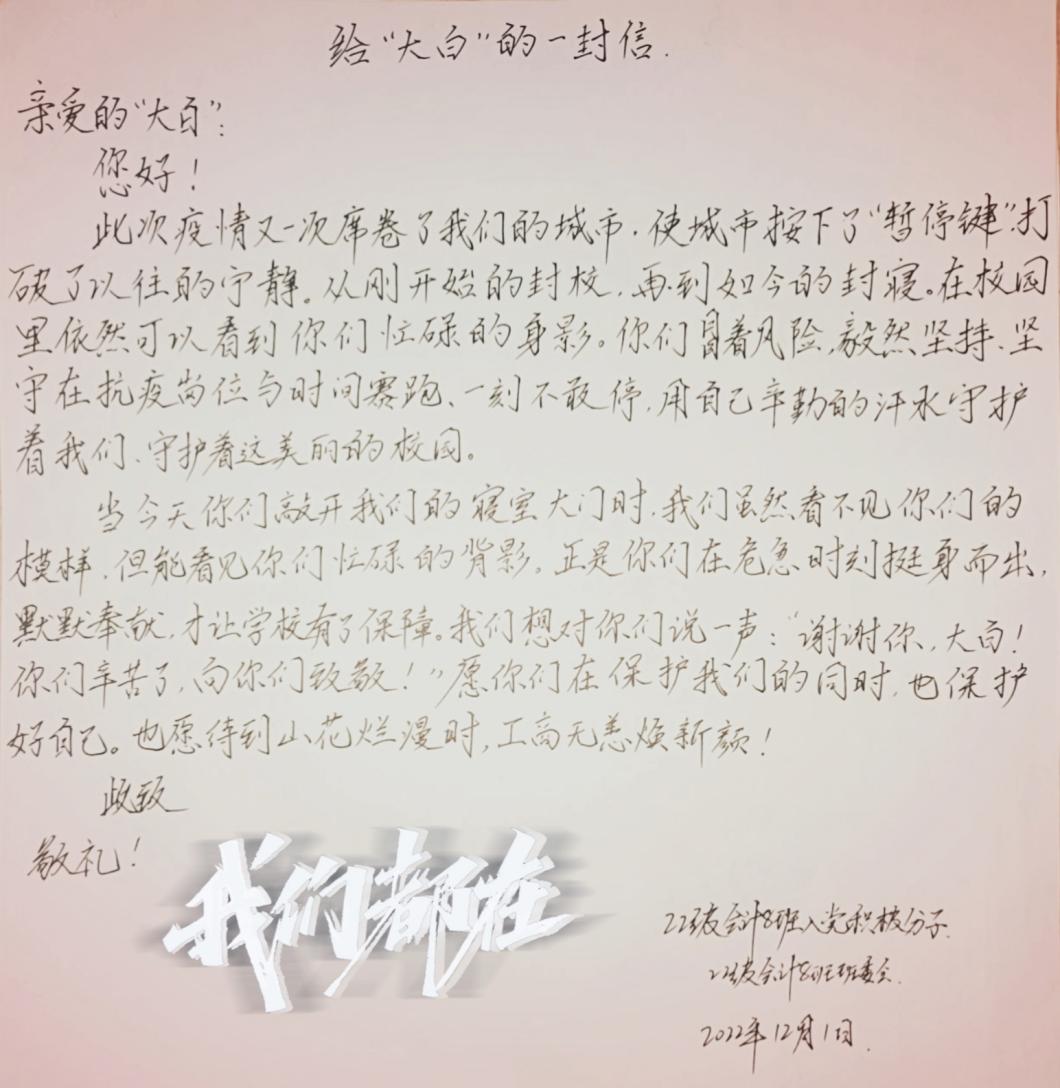 给“大白”的一封信.
亲爱的“大白”:
您好!
此次疫情又一次席卷了我们的城市.使城市按下了“暂停键”.打
破了以往的宁静。从刚开始的封校,再到如今的封寝。在校园
里依然可以看到你们忙碌的身影。你们冒着风险,毅然坚持、坚
守在抗疫岗位与时间赛跑、一刻不敢停,用自己辛勤的汗水守护
着我们、守护着这美丽的校园。
当今天你们敲开我们的寝室大门时,我们虽然看不见你们的
模样,但能看见你们忙碌的背影。正是你们在危急时刻挺身而出,
默默奉献,才让学校有了保障。我们想对你们说一声:“谢谢你,大白!
你们辛苦了,向你们致敬!”愿你们在保护我们的同时,也保护
好自己。也愿待到山花烂漫时,工商无恙焕新颜!
此致
敬礼!
我们都在
22级会计8班入党积极分子.
22级会计8班班委会.
2022年12月1日.